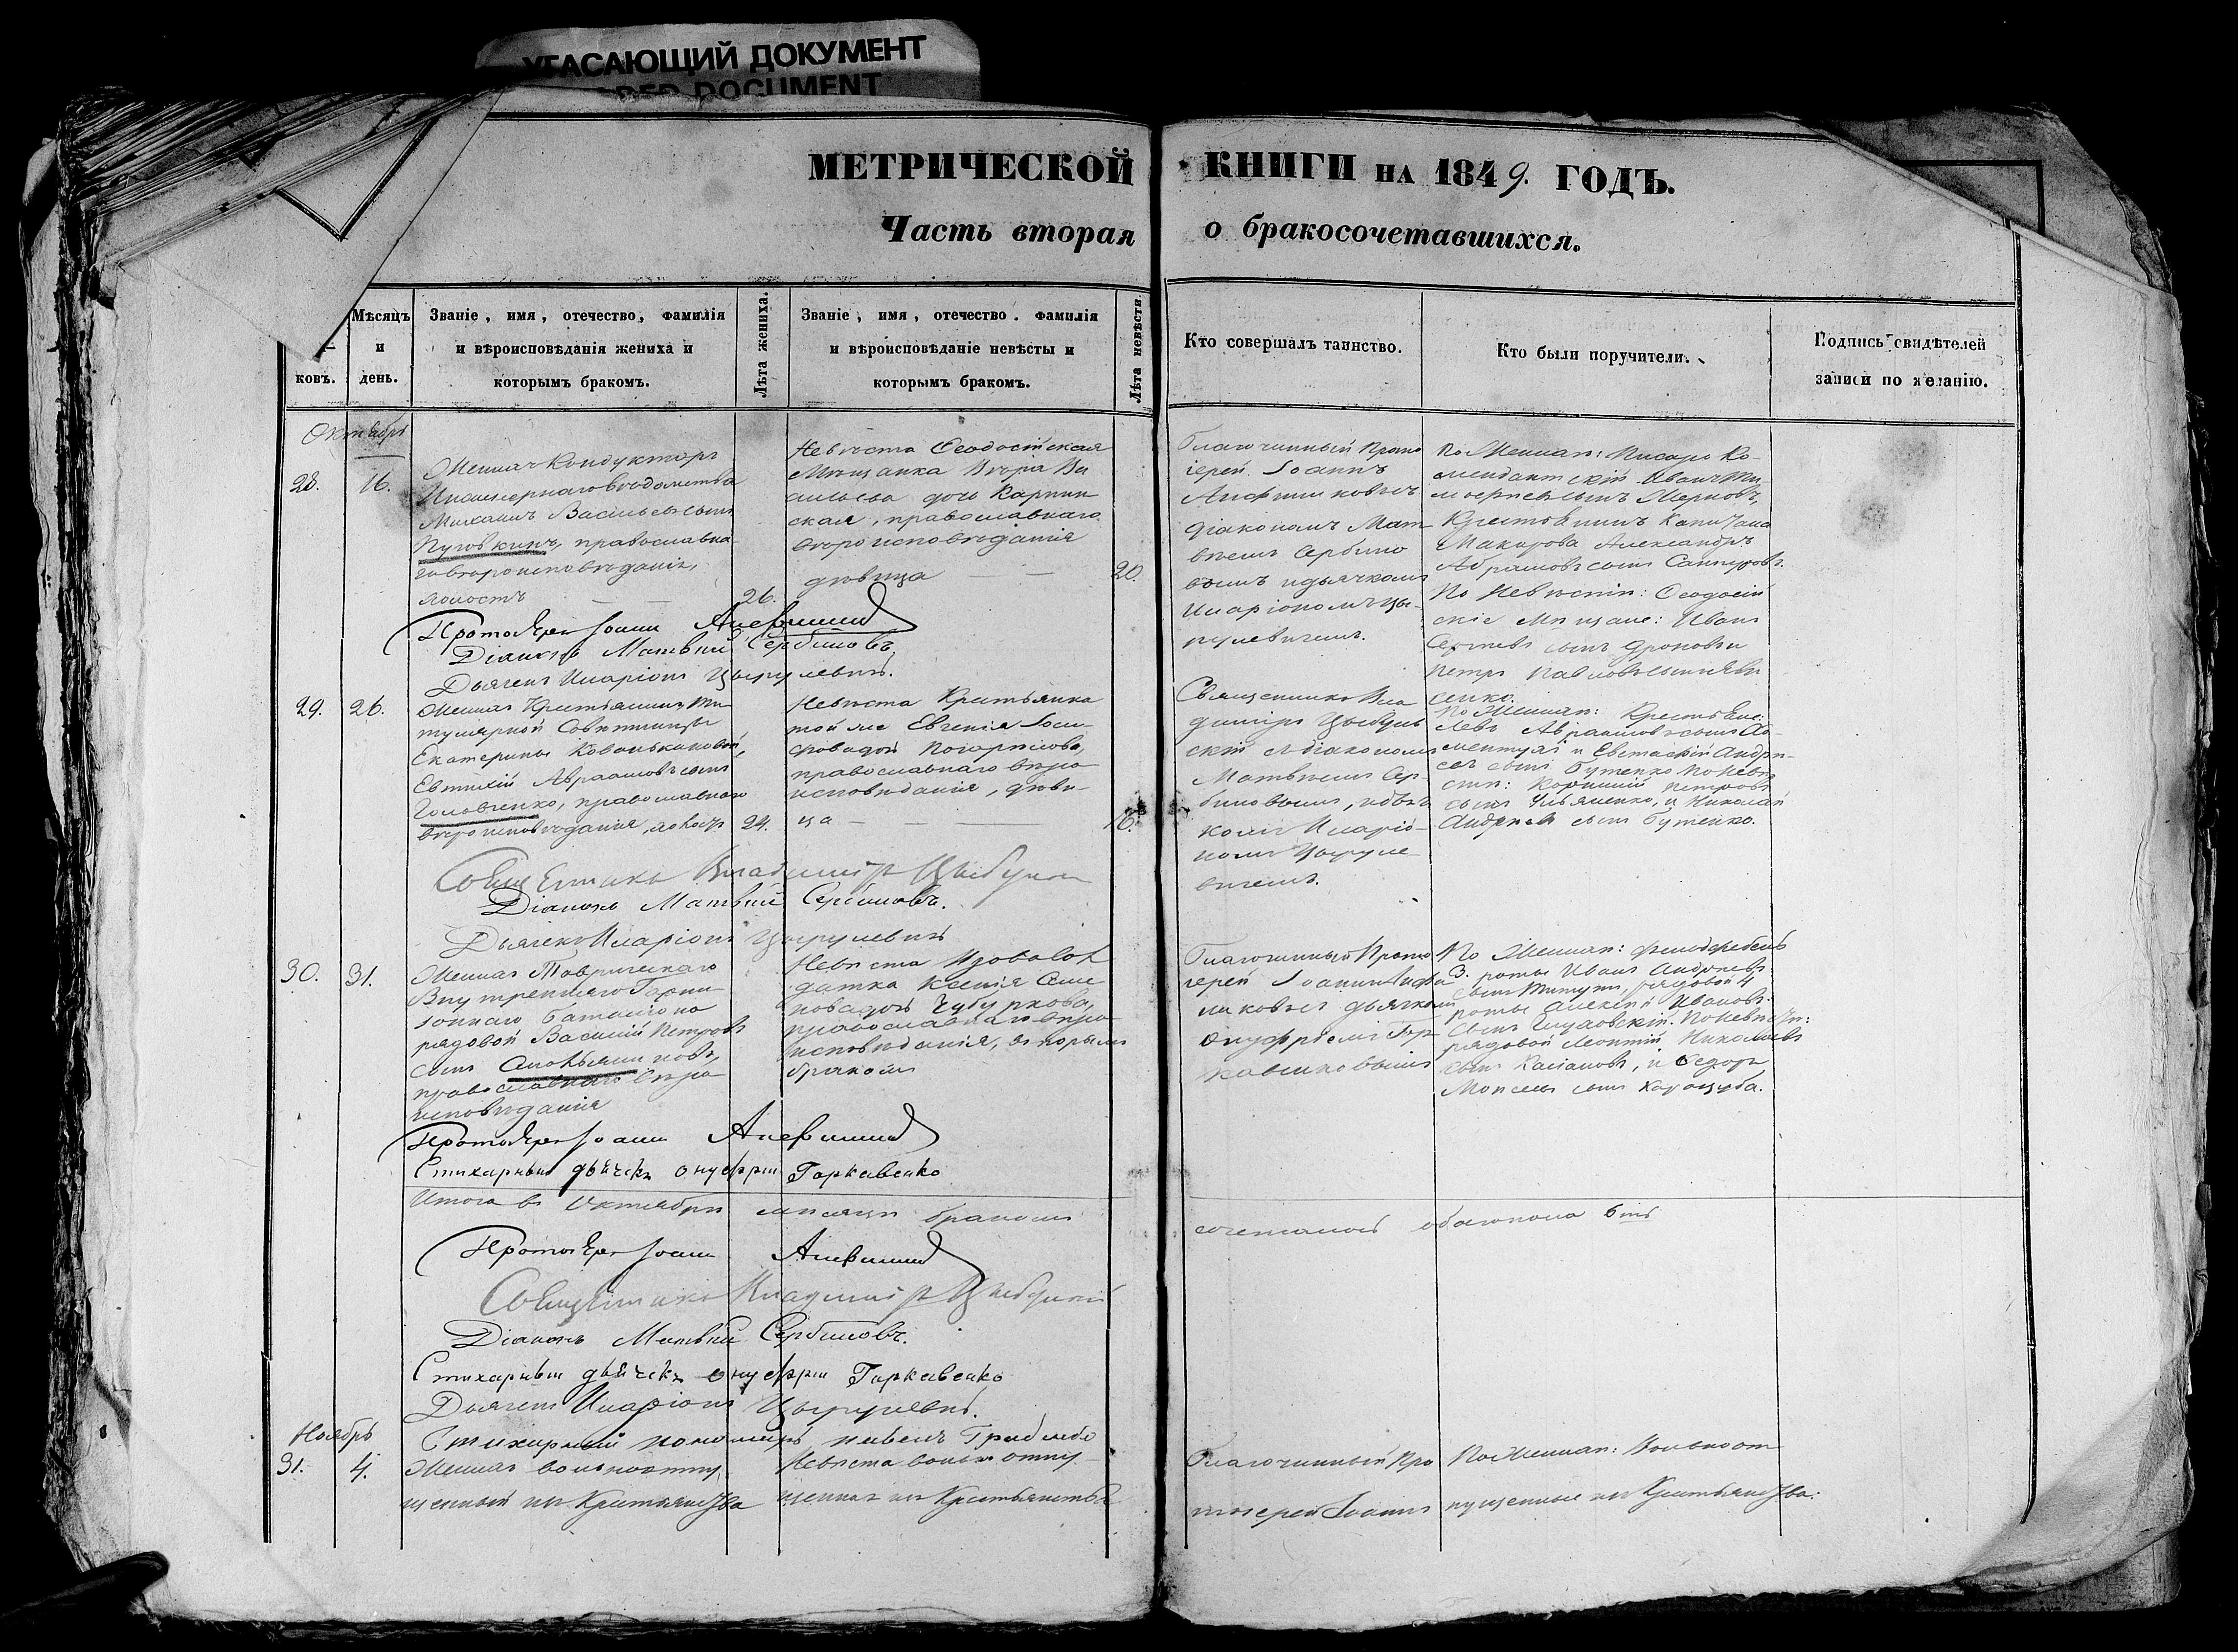 УГАСАЮЩИЙ ДОКУМЕНТ
DOCUMENT
МЕТРИЧЕСКОЙ КНИГИ НА 1849. ГОДЪ.
Часть вторая о бракосочетавшихся.
ковъ.
Мѣсяцъ
и
день.
Званіе, имя, отечество, фамилія
и вѣроисповѣданія жениха и
которымъ бракомъ.
Лѣта жениха.
Званіе, имя, отечество. фамилія
и вѣроисповѣданіе невѣсты и
которымъ бракомъ.
Лѣта невѣсты
Кто совершалъ таинство.
Кто были поручители.
Подпись свидѣтелей
записи по желанію.
Октябрь
28.
16.
Женихъ Кондукторъ
Инженернаго вѣдомства
Михаилъ Васильевъ сынъ
Пуговкинъ, православна
го вѣроисповѣданія,
холостъ
26.
Невѣста Ѳеодосійская
Мѣщанка Вѣра Ва
сильева дочь Карпин
ская, православнаго
вѣроисповѣданія
дѣвица
20.
Благочинный Прото
іерей Іоаннъ
діакономъ Мат
вѣемъ Сербино
вымъ и дьячкомъ
Иларіономъ Цы
рулевичемъ.
По Женихѣ: Писарь Ко
мендантскій Иванъ Ти
моѳеевъ сынъ
Крестьянинъ Капитана
Макарова Александръ
Абрамовъ сынъ
По Невѣстѣ: Ѳеодосій
скіе Мѣщане: Иванъ
Сергѣевъ сынъ
Петръ Павловъ сынъ
сенко.
Протоіерей Іоаннъ
Діаконъ Матвей Сербиновъ.
Дьячекъ Иларіонъ Цырулевичъ.
29.
26.
Женихъ Крестьянинъ Ти
тулярной Совѣтницы
Екатерины Кованькиковой,
Евтихій Авраамовъ сынъ
Головченко, православнаго
вѣроисповѣданія, холостъ
24.
Невѣста Крестьянка
той же Евгенія Іоси
фова дочь Погорѣлова,
православнаго вѣро
исповѣданія, дѣви
ца
16.
Священникъ Вла
диміръ Цыбуль
скій съ діакономъ
Матвѣемъ Сер
биновымъ, и дьяч
комъ Иларіо
номъ Цыруле
вичемъ.
По Женихѣ: Крестьяне:
Левъ Авраамовъ сынъ
и Евстафій Андре
евъ сынъ Бутенко По Невѣ
стѣ: Корнилій Петровъ
сынъ Ульяненко, и Николай
Андреевъ сынъ Бутенко.
Священникъ Владиміръ Цыбульскій
Діаконъ Матвей Сербиновъ.
Дьячекъ Иларіонъ Цырулевичъ
30.
31.
Женихъ Таврическаго
Внутренняго Гарни
зоннаго Баталіона
рядовой Василій Петровъ
сынъ
православнаго вѣро
исповѣданія
Невѣста
датка Ксенія Семе
нова дочь Чубуркова,
православнаго вѣро
исповѣданія, вторымъ
бракомъ
Благочинный Прото
іерей Іоаннъ
дьячкомъ
Онуфріемъ Гор
кавенковымъ
По Женихѣ: Фельдфебель
3. роты Иванъ Андреевъ
сынъ рядовой 4
роты Алексѣй Ивановъ
сынъ По Невѣстѣ:
рядовой Леонтій Николаевъ
сынъ Касіановъ, и Ѳедоръ
Моисеевъ сынъ
Протоіерей Іоаннъ
Стихарный дьячекъ Онуфрій Горкавенко
Итого въ Октябрѣ мѣсяцѣ бракомъ сочеталось обоюпола 6ть
Протоіерей Іоаннъ
Священникъ Владиміръ Цыбульскій
Діаконъ Матвей Сербиновъ.
Стихарный дьячекъ Онуфрій Горкавенко
Дьячекъ Иларіонъ Цырулевичъ.
Стихарный пономарь Павелъ
Ноябрь
31.
4.
Женихъ вольноотпу
щенный изъ Крестьянства
Невѣста вольноотпу
щенная изъ Крестьянства
Благочинный Про
тоіерей Іоаннъ
По Женихѣ: Вольноот
пущенные изъ Крестьянства: